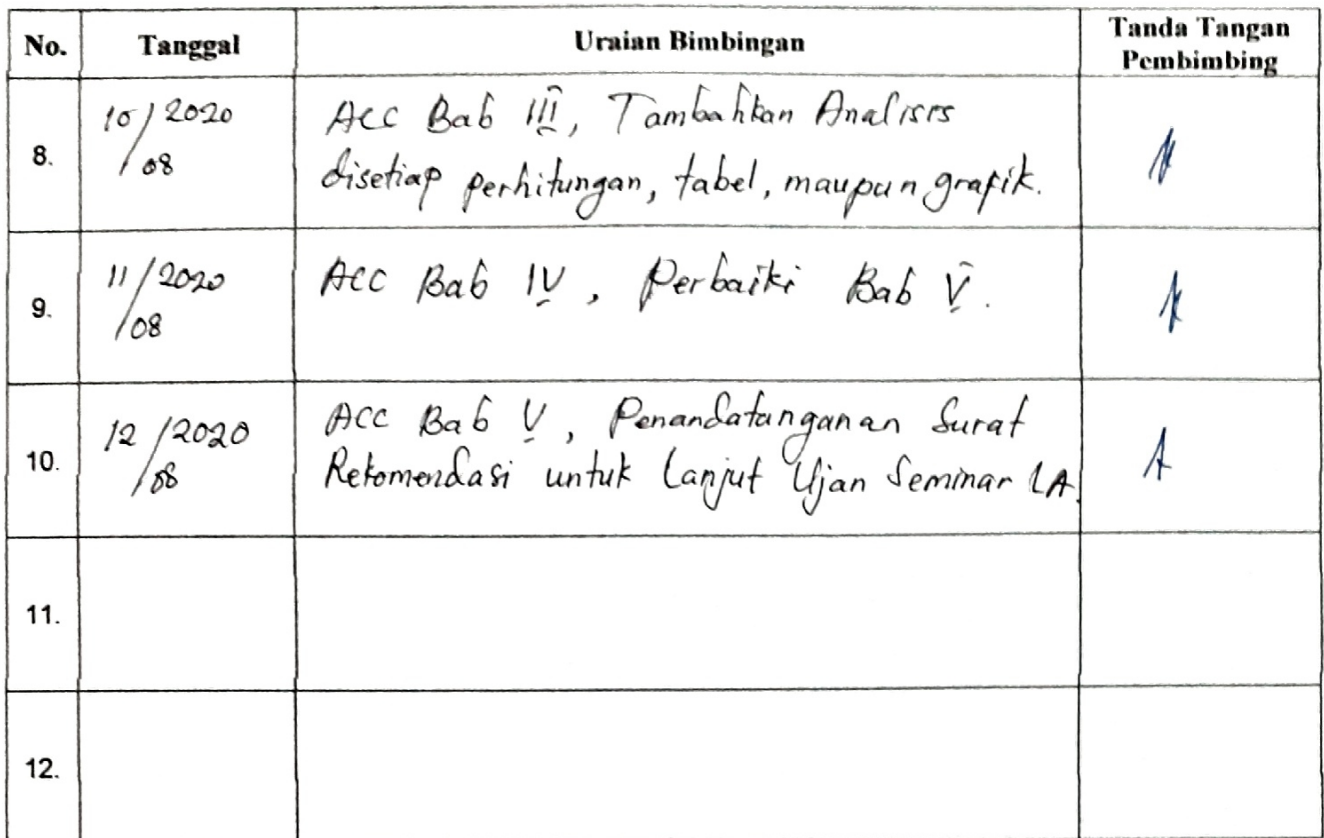 No. Tanggal Uraian Bimbingan Tanda Tangan Pembimbing
8. 10/2020 /08 Acc Bab III, Tambahkan Analisis
disetiap perhitungan, tabel, maupun grafik.
9. 11/2020 /08 Acc Bab IV, Perbaiki Bab V.
10. 12/2020 /08 Acc Bab V, Penandatanganan Surat
Rekomendasi untuk Lanjut Ujian Seminar LA
11.
12.